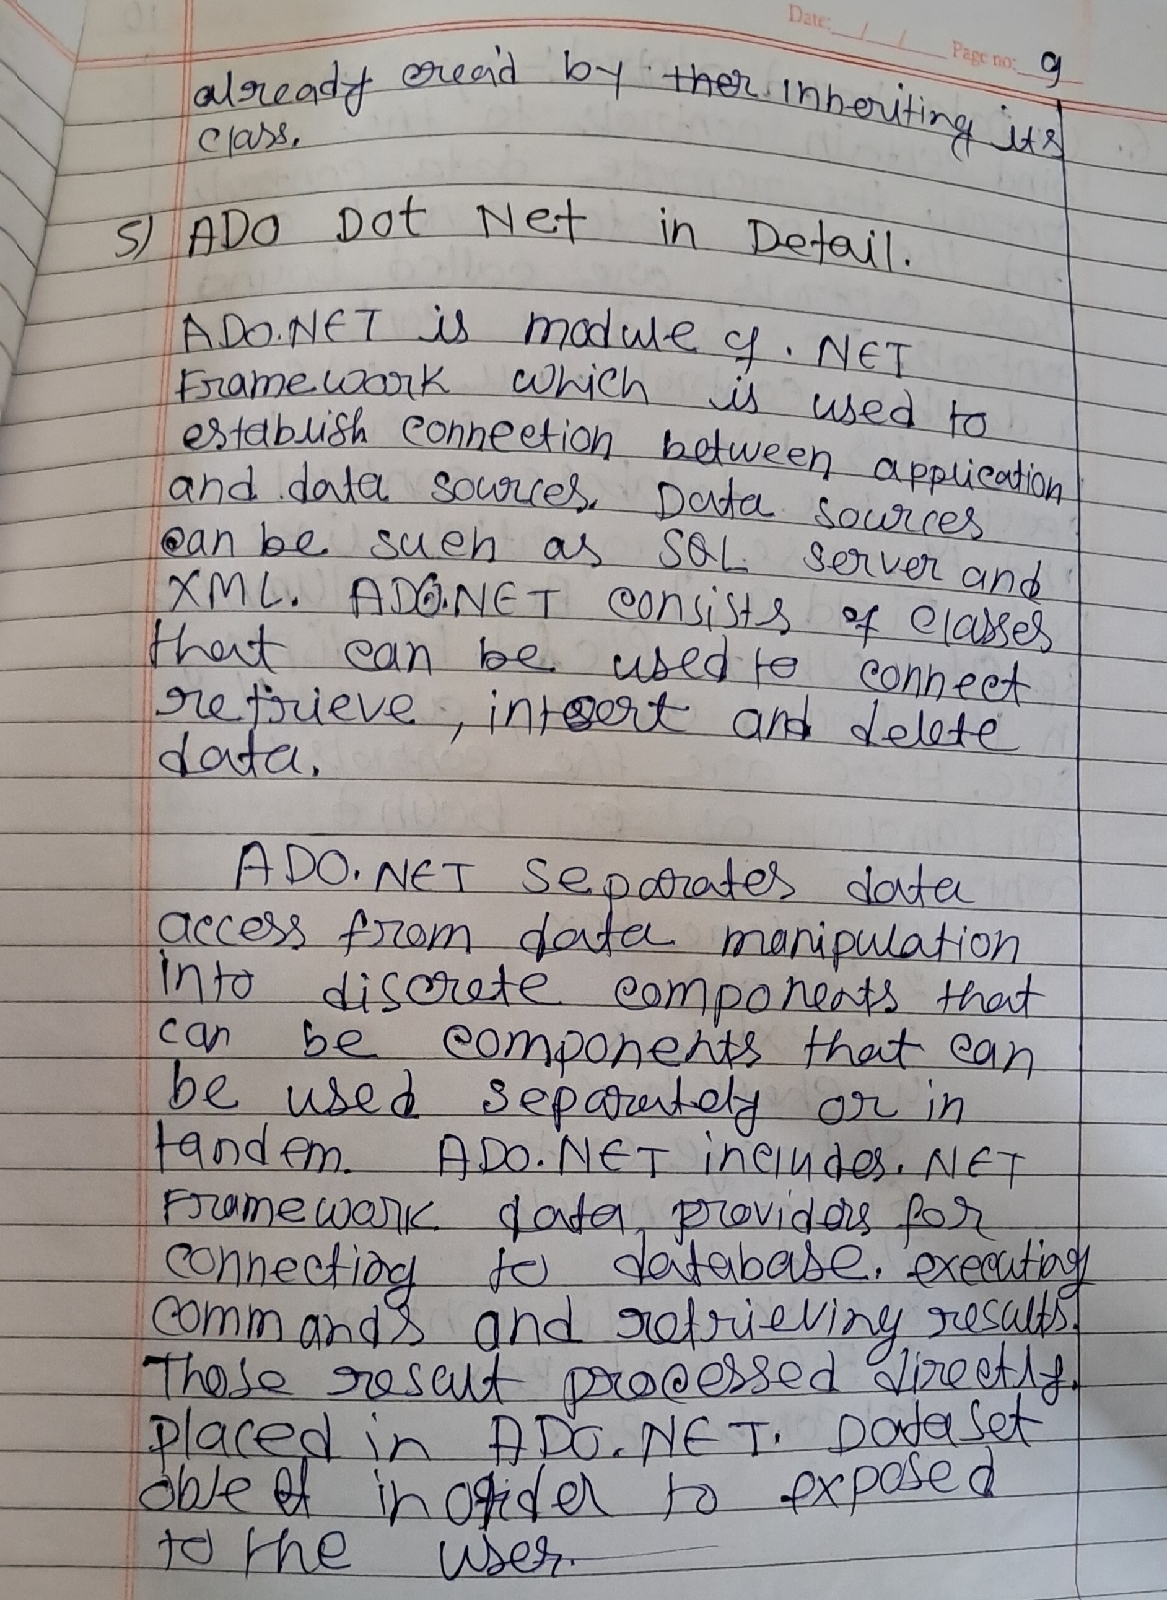 Date: / / Page no: 9
already creaid by ther inheriting its
class.
5) ADO Dot Net in Detail.
ADO.NET is module of .NET
Framework which is used to
establish connection between application
and data sources. Data sources
can be such as SQL server and
XML. ADO.NET consists of classes
that can be used to connect
retrieve, insert and delete
data.
ADO.NET separates data
access from data manipulation
into discrete components that
can be components that can
be used separately or in
tandem. ADO.NET includes .NET
Framework data providers for
connecting to database, executing
commands and retrieving results.
Those result processed directly.
placed in ADO.NET. Dataset
in order to exposed
to the user.